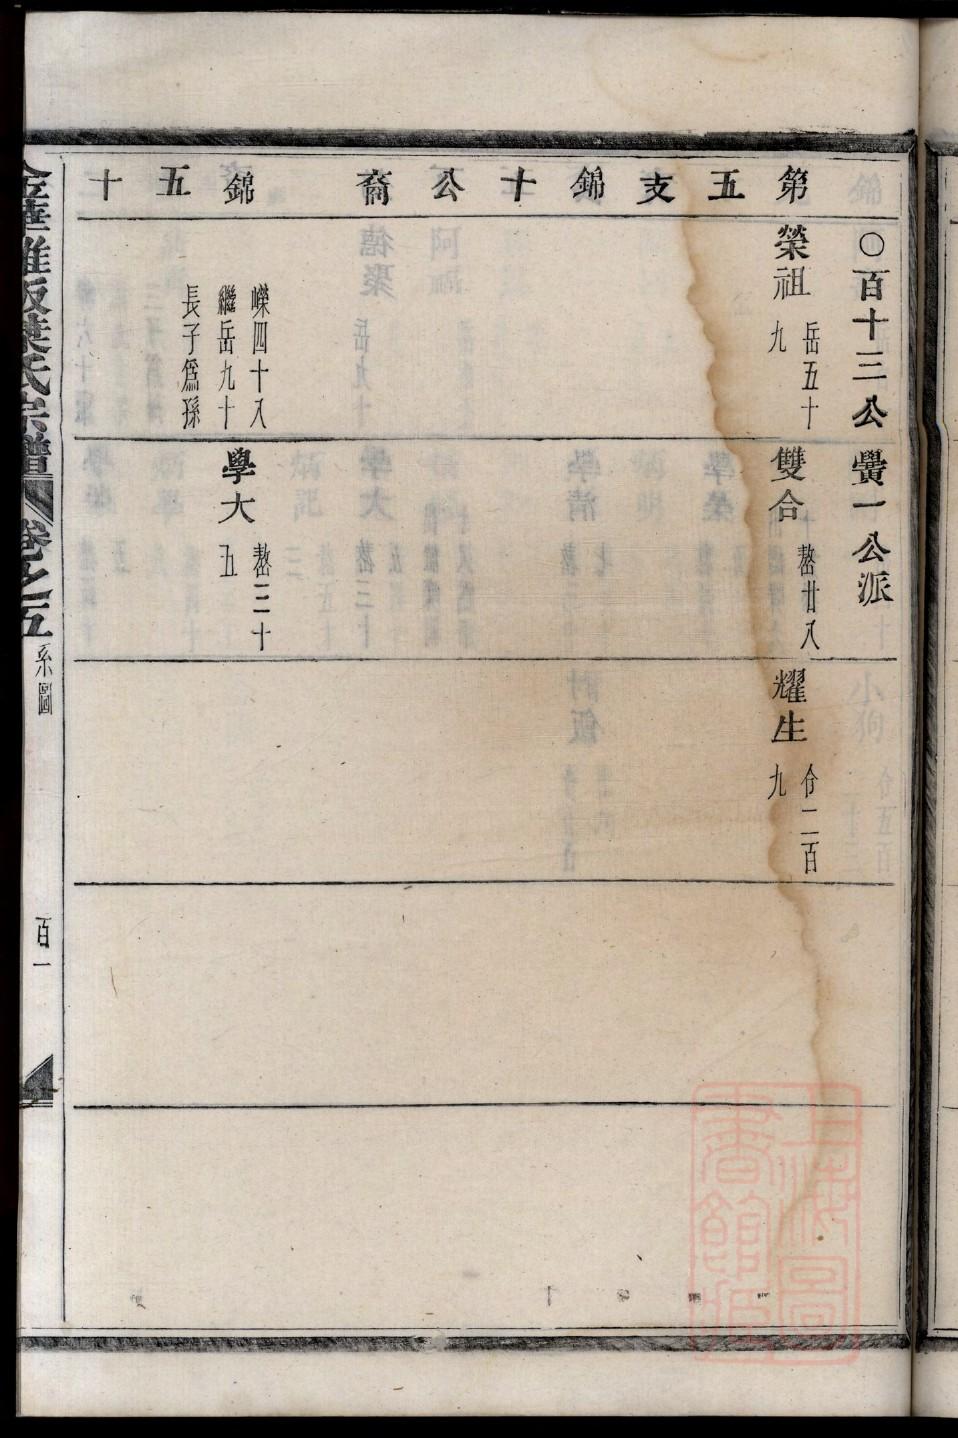 第五支錦十公裔 錦五十
○百十三公黌一公派
榮祖
岳五十
九
雙合
嶅廿八
耀生
㑹二百
九
嶸四十八
繼岳九十
長子爲孫
學大
嶅三十
五
金華雅畈葉氏宗譜
卷之五
系圖
百一
上海圖
書館藏